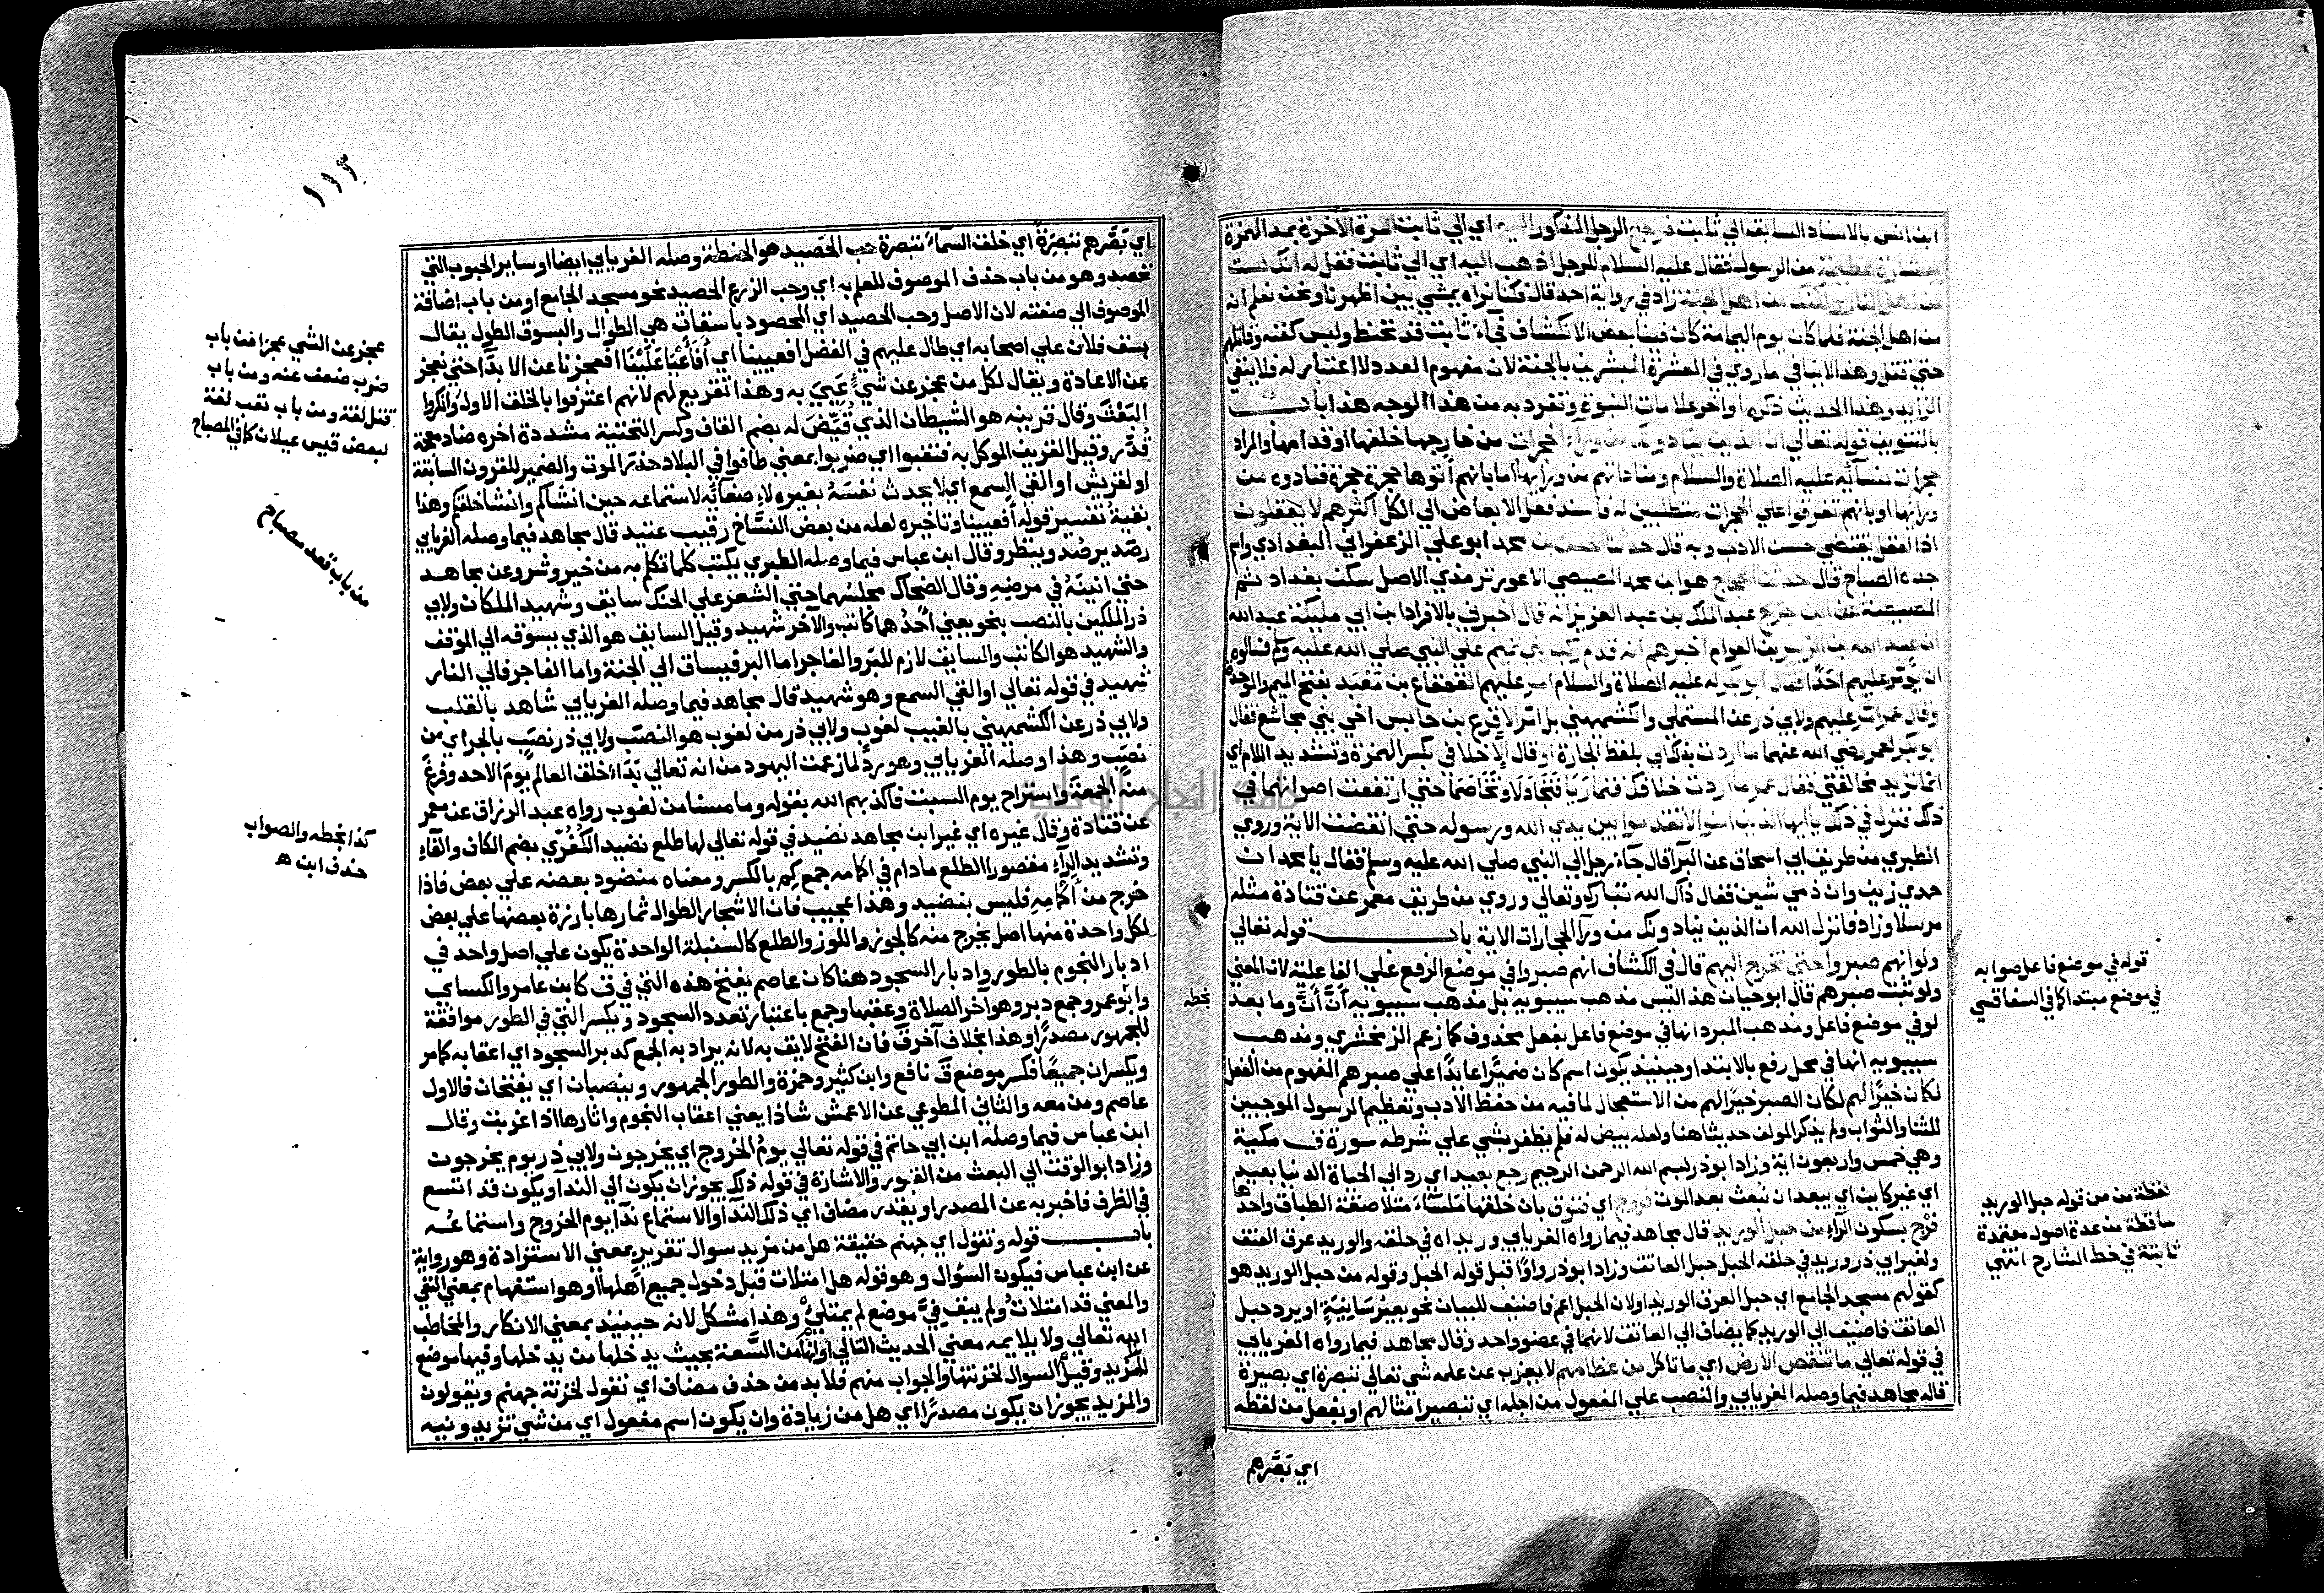 ابن انس بالاسناد السابق الي ثابت فرجع الرجل المذكور اليه اي الي ثابت المرة الاخرة بمد الهمزة
ببشارة عظيمة من الرسول فقال عليه السلام للرجل اذهب اليه اي الي ثابت فقل له انك لست
من اهل النار ولكنك من اهل الجنة زاد في رواية احمد قال فكنا نراه يمشي بين اظهرنا ونحن نعلم انه
من اهل الجنة فلما كان يوم اليمامة كان فينا بعض الانكشاف فجاء ثابت قد تحنط ولبس كفنه وقاتلهم
حتي قتل وهذا لا ينافي ما روي في العشرة المبشرين بالجنة لان مفهوم العدد لا اعتبار له فلا ينفي
الزايد وهذا الحديث ذكره اواخر علامات النبوة وتفرد به من هذا الوجه هذا باب
بالتنوين قوله تعالي ان الذين ينادونك من وراء الحجرات من خارجها خلفها او قدامها والمراد
حجرات نسآئه عليه الصلاة والسلام ومناداتهم من ورايها اما بانهم اتوها حجرة حجرة فنادوه من
ورائها او بانهم تفرقوا علي الحجرات متطلبين له فاسند فعل الابعاض الي الكل اكثرهم لا يعقلون
اذ العقل يقتضي حسن الادب وبه قال حدثنا حسن بن محمد ابو علي الزعفراني البغدادي واسم
جده الصباح قال حدثنا حجاج هو ابن محمد المصيصي الاعور ترمذي الاصل سكن بغداد ثم
المصيصة عن ابن جريج عبد الملك بن عبد العزيز انه قال اخبرني بالافراد ابن ابي مليكة عبد الله
ان عبد الله بن الزبير بن العوام اخبرهم انه قدم ركب بني تميم علي النبي صلي الله عليه وسلم فسالوه
ان يؤمر عليهم احدا فقال ابو بكر له عليه الصلاة والسلام امر عليهم القعقاع بن معبد بفتح الميم والموحدة
وقال عمر امر عليهم ولابي ذر عن المستملي والكشميهني بل امر الاقرع بن حابس اخي بني مجاشع فقال
ابو بكر لعمر رضي الله عنهما ما اردت بذلك الي بلفظ الجارة او قال الا خلافي بكسر الهمزة وتشديد اللام اي
انما تريد مخالفتي فقال عمر ما اردت خلافك فتماريا فتجادلا وتخاصما حتي ارتفعت اصواتهما في
ذلك فنزل في ذلك يا ايها الذين امنوا لا تقدموا بين يدي الله ورسوله حتي انقضت الاية وروي
الطبري من طريق ابي اسحاق عن البرآ قال جآء رجل الي النبي صلي الله عليه وسلم فقال يا محمد ان
حمدي زين وان ذمي شين فقال ذاك الله تبارك وتعالي وروي من طريق معمر عن قتادة مثله
مرسلا وزاد فانزل الله ان الذين ينادونك من ورآ الحجرات الاية باب قوله تعالي
ولو انهم صبروا حتي تخرج اليهم قال في الكشاف انهم صبروا في موضع الرفع علي الفاعلية لان المعني
ولو ثبت صبرهم قال ابو حيان هذا ليس مذهب سيبويه بل مذهب سيبويه ان أنّ وما بعد
لو في موضع فاعل ومذهب المبرد انها في موضع فاعل بفعل محذوف كما زعم الزمخشري ومذهب
سيبويه انها في محل رفع بالابتدا وحينيذ يكون اسم كان ضميرا عايدا علي صبرهم المفهوم من الفعل
لكان خيرا لهم لكان الصبر خيرا لهم من الاستعجال لما فيه من حفظ الادب وتعظيم الرسول الموجبين
للثنا والثواب ولم يذكر المولف حديثا هنا ولعله بيض له فلم يظفر بشي علي شرطه سورة ق مكية
وهي خمس واربعون اية وزاد ابو ذر بسم الله الرحمن الرحيم رجع بعيد اي رد الي الحياة الدنيا بعيد
اي غير كاين اي يبعد ان نبعث بعد الموت فروج اي فتوق بان خلقها ملسآء متلاصقة الطباق واحدها
فرج بسكون الرآء من حبل الوريد قال مجاهد فيما رواه الفريابي وريداه في حلقه والوريد عرق العنق
ولغير ابي ذر وريد في حلقه الحبل حبل العاتق وزاد ابو ذر واوا قبل قوله الحبل وقوله من حبل الوريد هو
كقولهم مسجد الجامع اي حبل العرق الوريد او لان الحبل اعم فاضيف للبيان نحو بعير سانية او يريد حبل
العاتق فاضيف الي الوريد كما يضاف الي العاتق لانهما في عضو واحد وقال مجاهد فيما رواه الفريابي
في قوله تعالي ما تنقص الارض اي ما تاكل من عظامهم لا يعزب عن علمه شي تعالي تبصرة اي بصيرة
قاله مجاهد فيما وصله الفريابي والنصب علي المفعول من اجله اي تبصير امثالهم او بفعل من لفظه
اي بصرهم
قوله في موضع فاعل صوابه
في موضع مبتدا كما في السفاقسي
لفظة من من قوله حبل الوريد
ساقطة من عدة اصول معتمدة
ثابتة في خط الشارح انتهي
١١٣
اي بصرهم تبصرة اي خلق السمآء تبصرة حب الحصيد هو الحنطة وصله الفريابي ايضا او ساير الحبوب التي
تحصد وهو من باب حذف الموصوف للعلم به اي وحب الزرع الحصيد نحو مسجد الجامع او من باب اضافة
الموصوف الي صفته لان الاصل وحب الحصيد اي المحصود باسقات هي الطوال والبسوق الطول يقال
بسق فلان علي اصحابه اي طال عليهم في الفضل افعيينا اي أفأعيا علينا افعجزنا عن الابدا حتي نعجز
عن الاعادة ويقال لكل من عجز عن شي عيي به وهذا تقريع لهم لانهم اعترفوا بالخلق الاول وانكروا
البعث وقال قرينه هو الشيطان الذي قيض له بضم القاف وكسر التحتية مشددة اخره ضاد معجمة
قدر وقيل القرين الموكل به فنقبوا اي ضربوا بمعني طافوا في البلاد حذر الموت والضمير للقرون السابقة
او لقريش او القي السمع اي لا يحدث نفسه بغيره لاصغآئه لاستماعه حين انشاكم وانشا خلقكم وهذا
بقية تفسير قوله افعيينا وتاخيره لعله من بعض النساخ رقيب عتيد قال مجاهد فيما وصله الفريابي
رصد يرصد وينظر وقال ابن عباس فيما وصله الطبري يكتب كلما تكلم به من خير وشر وعن مجاهد
حتي انينه في مرضه وقال الضحاك مجلسهما حتي الشعر علي الحنك سايق وشهيد الملكان ولابي
ذر الملكين بالنصب بنحو يعني احدهما كاتب والآخر شهيد وقيل السايق هو الذي يسوقه الي الموقف
والشهيد هو الكاتب والسايق لازم للبر والفاجر اما البر فيساق الي الجنة واما الفاجر فالي النار
شهيد في قوله تعالي او القي السمع وهو شهيد قال مجاهد فيما وصله الفريابي شاهد بالقلب
ولابي ذر عن الكشميهني بالغيب لغوب ولابي ذر من لغوب هو النصب ولابي ذر نصب بالجر اي من
نصب وهذا وصله الفريابي وهو رد لما زعمت اليهود من انه تعالي بدآء خلق العالم يوم الاحد وفرغ
منه الجمعة واستراح يوم السبت فاكذبهم الله بقوله وما مسنا من لغوب رواه عبد الرزاق عن معمر
عن قتادة وقال غيره اي غير ابن مجاهد نضيد في قوله تعالي لها طلع نضيد الكفري بضم الكاف والفآء
وتشديد الرآء مقصورا الطلع مادام في اكمامه جمع كم بالكسر ومعناه منضود بعضه علي بعض فاذا
خرج من اكمامه فليس بنضيد وهذا عجيب فان الاشجار الطوال ثمارها بارزة بعضها علي بعض
لكل واحدة منها اصل يخرج منه كالجوز واللوز والطلع كالسنبلة الواحدة يكون علي اصل واحد في
ادبار النجوم بالطور وادبار السجود هنا كان عاصم يفتح هذه التي في ق كابن عامر والكساي
وابو عمرو جمع دبر وهو اخر الصلاة وعقبها وجمع باعتبار تعدد السجود ويكسر التي في الطور موافقة
للجمهور مصدرا وهذا بخلاف آخر ق فان الفتح لايق به لانه يراد به الجمع كدبر السجود اي اعقابه كما مر
ويكسران جميعا فكسر موضع ق نافع وابن كثير وحمزة والطور الجمهور وينصبان اي يفتحان فالاول
عاصم ومن معه والثاني المطوعي عن الاعمش شاذا يعني اعقاب النجوم واثارها اذا غربت وقال
ابن عباس فيما وصله ابن ابي حاتم في قوله تعالي يوم الخروج اي يخرجون ولابي ذر يوم يخرجون
وزاد ابو الوقت الي البعث من القبور والاشارة في قوله ذلك يجوز ان يكون الي الندا ويكون قد اتسع
في الظرف فاخبر به عن المصدر او يقدر مضاف اي ذلك الندآ والاستماع ندآ يوم الخروج واستماعه
باب قوله وتقول اي جهنم حقيقة هل من مزيد سوال تقرير بمعني الاستزادة وهو رواية
عن ابن عباس فيكون السؤال وهو قوله هل امتلات قبل دخول جميع اهلها او هو استفهام بمعني النفي
والمعني قد امتلات ولم يبق في موضع لم يمتلئ وهذا مشكل لانه حينيذ بمعني الانكار والمخاطب
الله تعالي ولا يلايمه معني الحديث التالي او انها من السعة بحيث يدخلها من يدخلها وفيها موضع
للمزيد وقيل السوال لخزنتها والجواب منهم فلا بد من حذف مضاف اي نقول لخزنة جهنم ويقولون
والمزيد يجوز ان يكون مصدرا اي هل من زيادة وان يكون اسم مفعول اي من شي تزيدونيه
بخطه
عجز عن الشي عجزا من باب
ضرب ضعف عنه ومن باب
قتل لغة ومن باب تعب لغة
لبعض قيس عيلان كما في المصباح
من باب قعد مصباح
كذا بخطه والصواب
حذف ابن ه